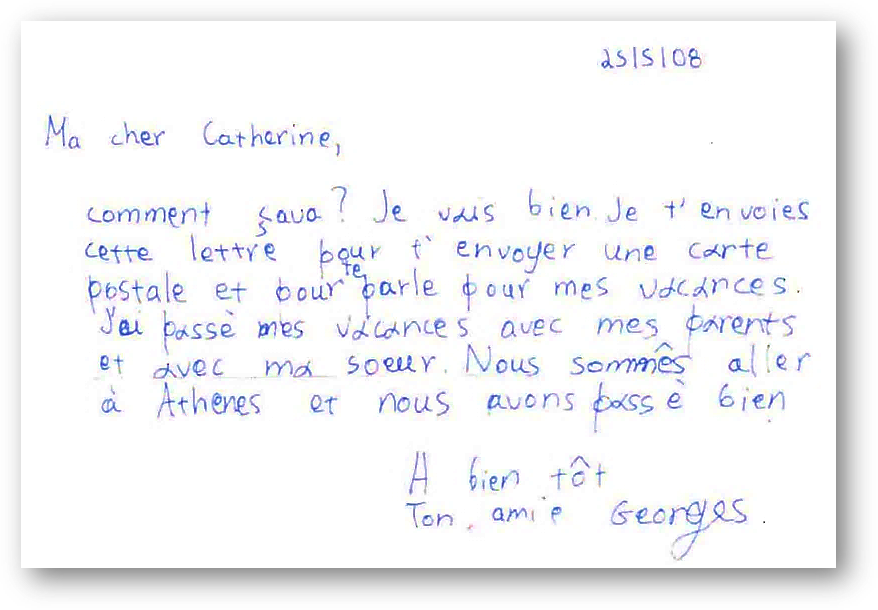 25/5/08
Ma cher Catherine,
comment şava? Je vais bien. Je t'envoies
cette lettre pour t'envoyer une carte
postale et pour te parle pour mes vacances.
J'ai passè mes vacances avec mes parents
et avec ma soeur. Nous sommês aller
à Athenes et nous avons passè bien
A bien tôt
Ton amie Georges.